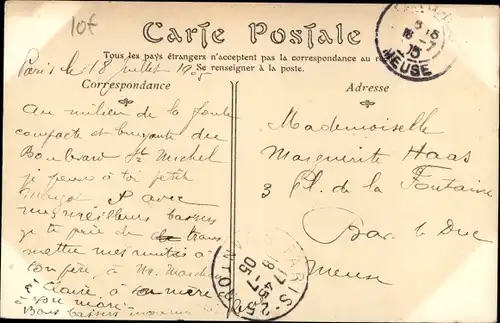 10f
Carte Postale
Tous les pays étrangers n'acceptent pas la correspondance au
Se renseigner à la poste.
Paris le 18 juillet 1905
Correspondance
Au milieu de la foule
compacte et bruyante du
Boulevard St Michel
je pense à toi petit
Margot avec
mes meilleurs baisers
je te prie de trans
mettre mes amitiés à
ton père, à
à Claire, à sa mère
Bons baisers
Adresse
Mademoiselle
Marguerite Haas
3 Pl. de la Fontaine
Bar le Duc
Meuse
MEUSE
PARIS
17 45
18 -7
05